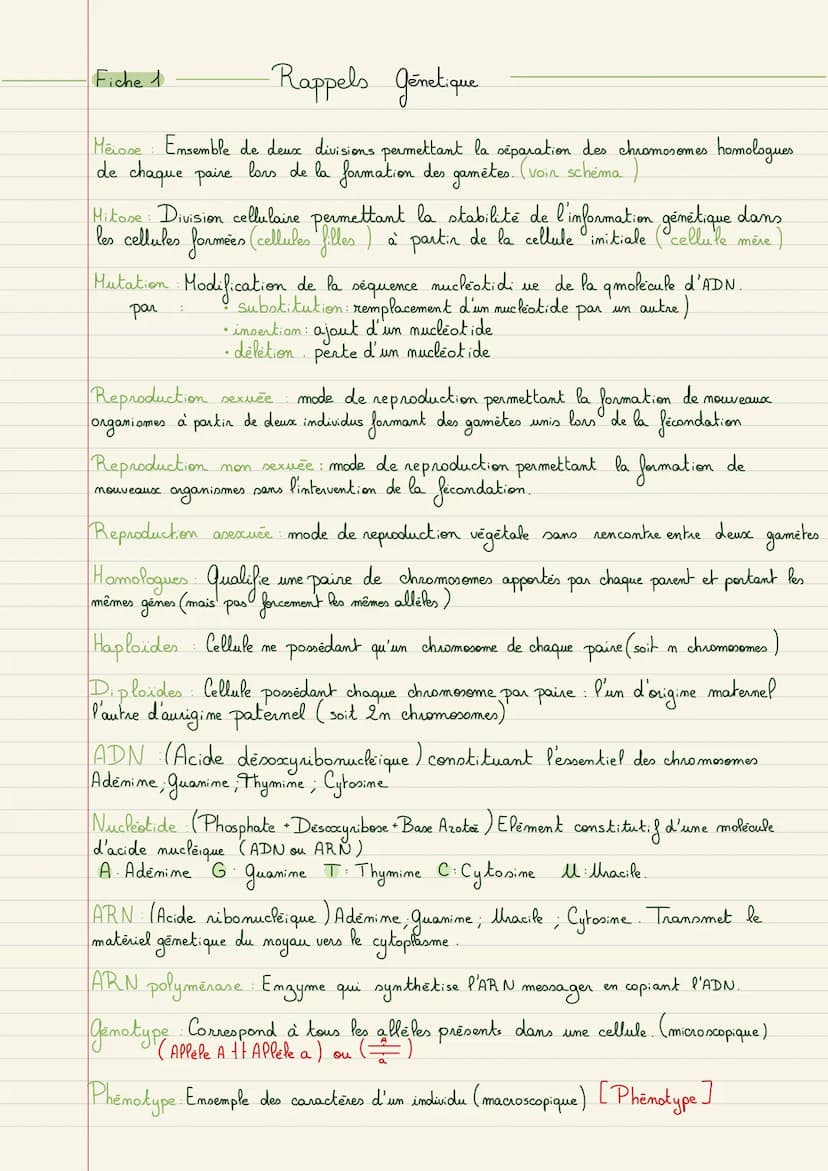 Fiche 1 Rappels Génetique
Méiose : Ensemble de deux divisions permettant la séparation des chromosomes homologues
de chaque paire lors de la formation des gamètes. (voir schéma)
Mitose : Division cellulaire permettant la stabilité de l'information génétique dans
les cellules formées (cellules filles) à partir de la cellule initiale (cellule mère)
Mutation : Modification de la séquence nucléotidi ue de la qmolécule d'ADN.
par : • substitution : remplacement d'un nucléotide par un autre)
• insertion : ajout d'un nucléotide
• délétion . perte d'un nucléotide
Reproduction sexuée : mode de reproduction permettant la formation de nouveaux
organismes à partir de deux individus formant des gamètes unis lors de la fécondation
Reproduction non sexuée : mode de reproduction permettant la formation de
nouveaux organismes sans l'intervention de la fécondation.
Reproduction asexuée : mode de reproduction végétale sans rencontre entre deux gamètes
Homologues : Qualifie une paire de chromosomes apportés par chaque parent et portant les
mêmes gènes (mais pas forcement les mêmes allèles)
Haploïdes : Cellule ne possédant qu'un chromosome de chaque paire (soit n chromosomes)
Diploïdes : Cellule possédant chaque chromosome par paire : l'un d'origine maternel
l'autre d'aurigine paternel (soit 2n chromosomes)
ADN : (Acide désoxyribonucléique) constituant l'essentiel des chromosomes
Adénine ; Guanine ; Thymine ; Cytosine
Nucléotide : (Phosphate + Désoxyribose + Base Azotée) Elément constitutif d'une molécule
d'acide nucléique (ADN ou ARN)
A : Adénine G : Guanine T : Thymine C : Cytosine U : Uracile.
ARN : (Acide ribonucléique) Adénine ; Guanine ; Uracile ; Cytosine. Transmet le
matériel génetique du noyau vers le cytoplasme.
ARN polymérase : Enzyme qui synthétise l'ARN messager en copiant l'ADN.
Génotype : Correspond à tous les allèles présents dans une cellule. (microscopique)
(Allèle A ++ Allèle a) ou (A/a)
Phénotype : Ensemple des caractères d'un individu (macroscopique) [Phénotype]